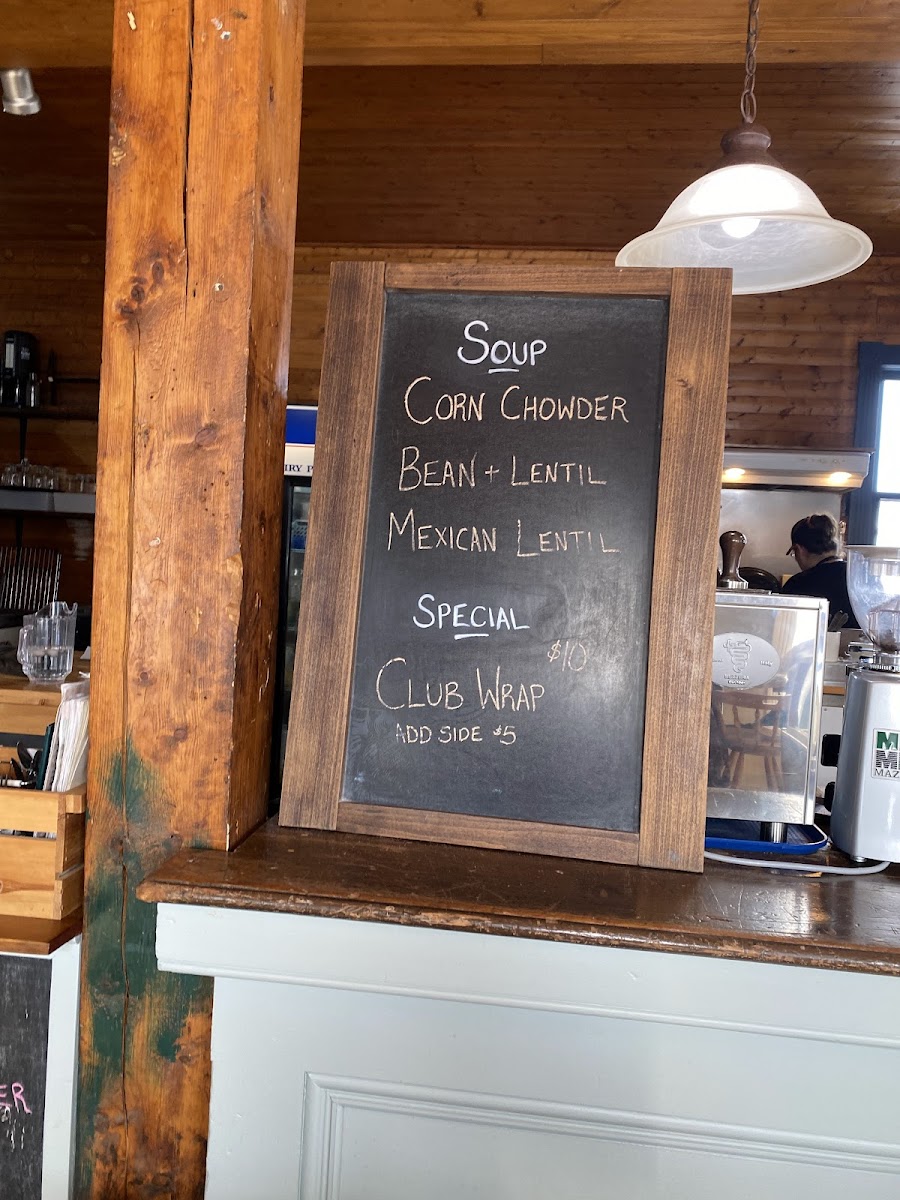 Soup
Corn Chowder
Bean + Lentil
Mexican Lentil
Special
$10
Club Wrap
Add Side $5
IRY P
MAZ
ER